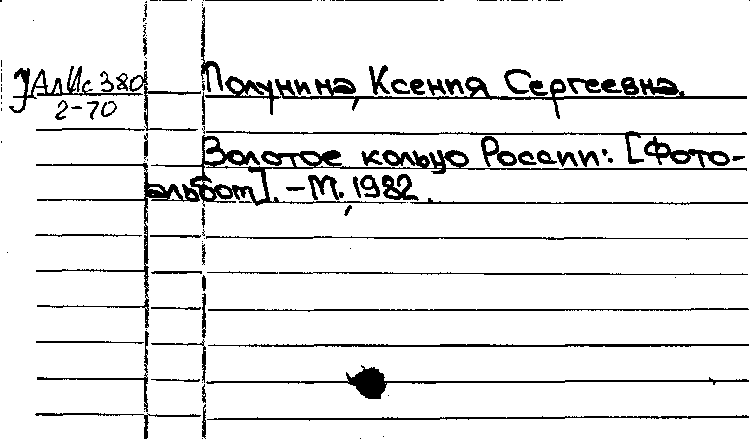 АлИс 380 Полунина, Ксения Сергеевна.
2-70
Золотое кольцо России: [Фото-
альбом]. – М., 1982.